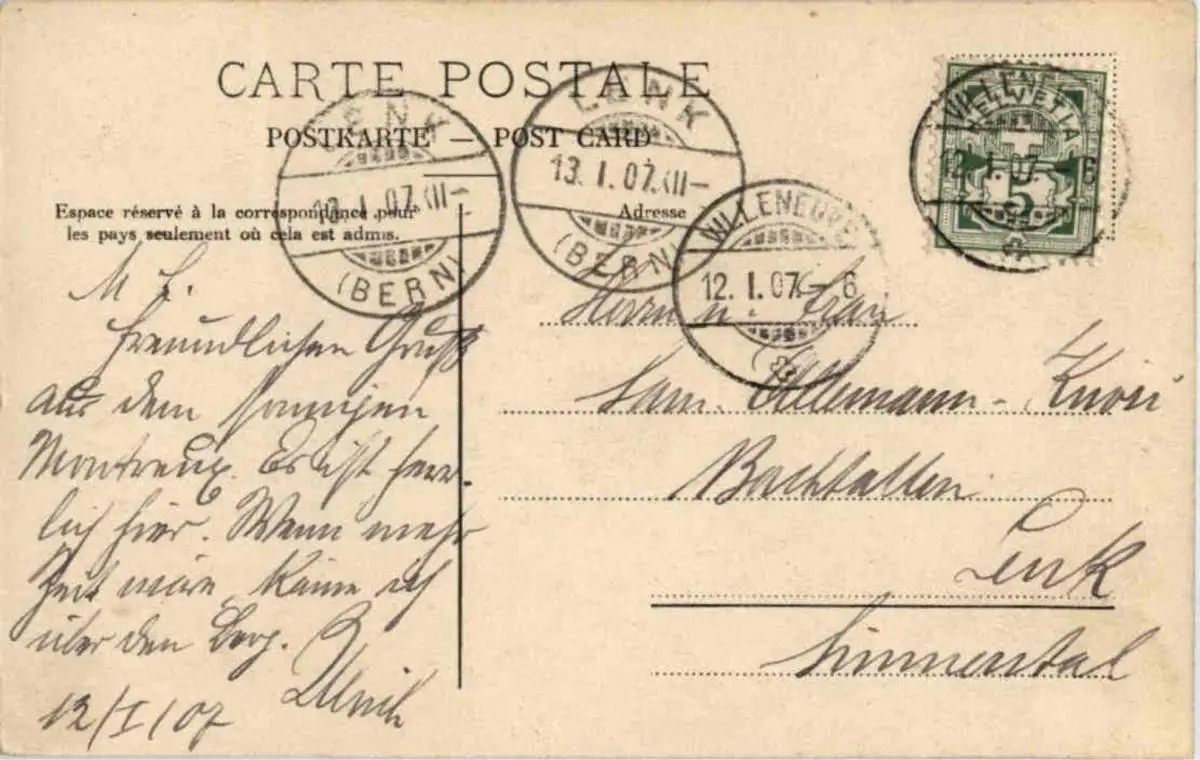 CARTE POSTALE
POSTKARTE — POST CARD
Espace réservé à la correspondance pour
les pays seulement où cela est admis.
Adresse
LENK
13. I. 07. XII–
(BERN)
LENK
13. I. 07. XII–
(BERN)
VILLENEUVE
12. I. 07. – 6
VILLENEUVE
12. I. 07. – 6
HELVETIA
5
M L.
Freundlichen Gruß
aus dem sonnigen
Montreux. Es ist herr-
lich hier. Wenn mehr
Zeit wäre, käme ich
über den Berg.
Ulrich
12/I/07
Herrn u. Frau
Sam. Allemann-
Bachtallen
Lenk
Simmental